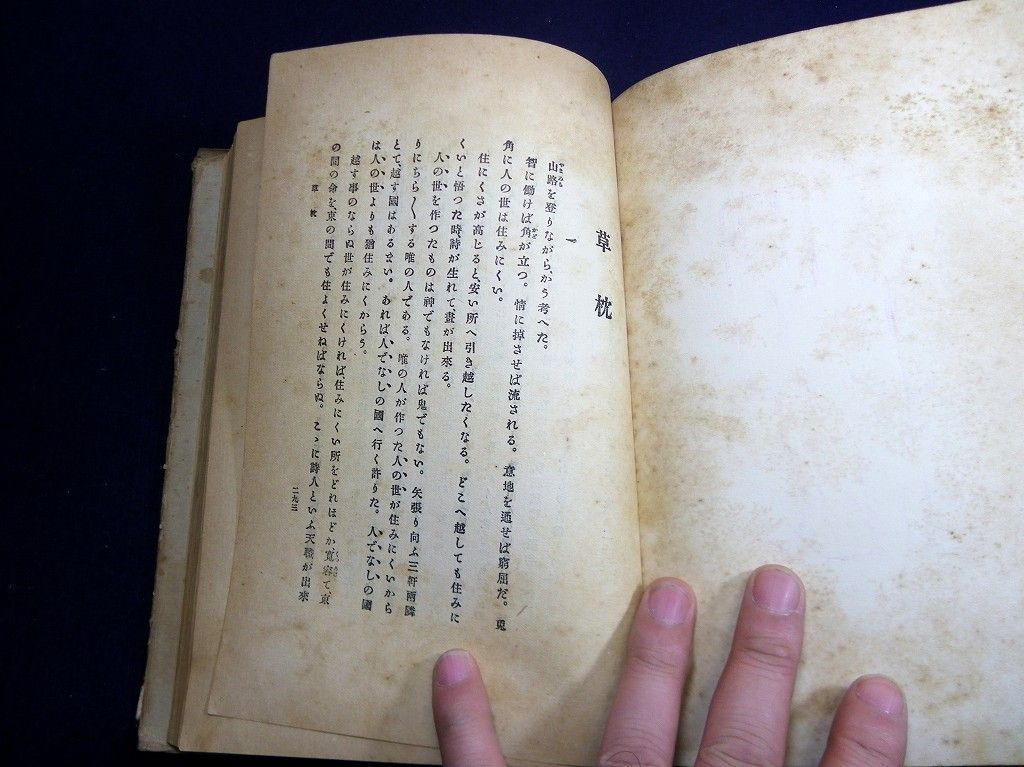 草枕
一
山路を登りながら、かう考へた。
智に働けば角が立つ。情に掉させば流される。意地を通せば窮屈だ。兎
角に人の世は住みにくい。
住にくさが高じると、安い所へ引き越したくなる。どこへ越しても住みに
くいと悟つた時、詩が生れて、畫が出來る。
人の世を作つたものは神でもなければ鬼でもない。矢張り向ふ三軒兩隣
りにちら〳〵する唯の人である。唯の人が作つた人の世が住みにくいから
とて、越す國はあるまい。あれば人でなしの國へ行く許りだ。人でなしの國
は人の世よりも猶住みにくからう。
越す事のならぬ世が住みにくければ、住みにくい所をどれほどか、寛容て、束
の間の命を、束の間でも住よくせねばならぬ。こゝに詩人といふ天職が出來
草枕
二九三